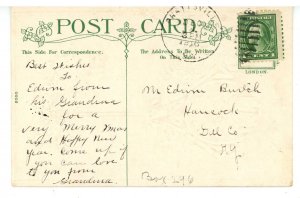 POST CARD
This Side for Correspondence.
The Address to be Written
on This Side.
LONDON.
Best Wishes
To
Edwin from
his Grandma
for a
very Merry Xmas
and Happy New
Year. Come up if
you can Love
to you from
Grandma.
Mr Edwin
Hancock
Del Co.
N.Y.
Box 296